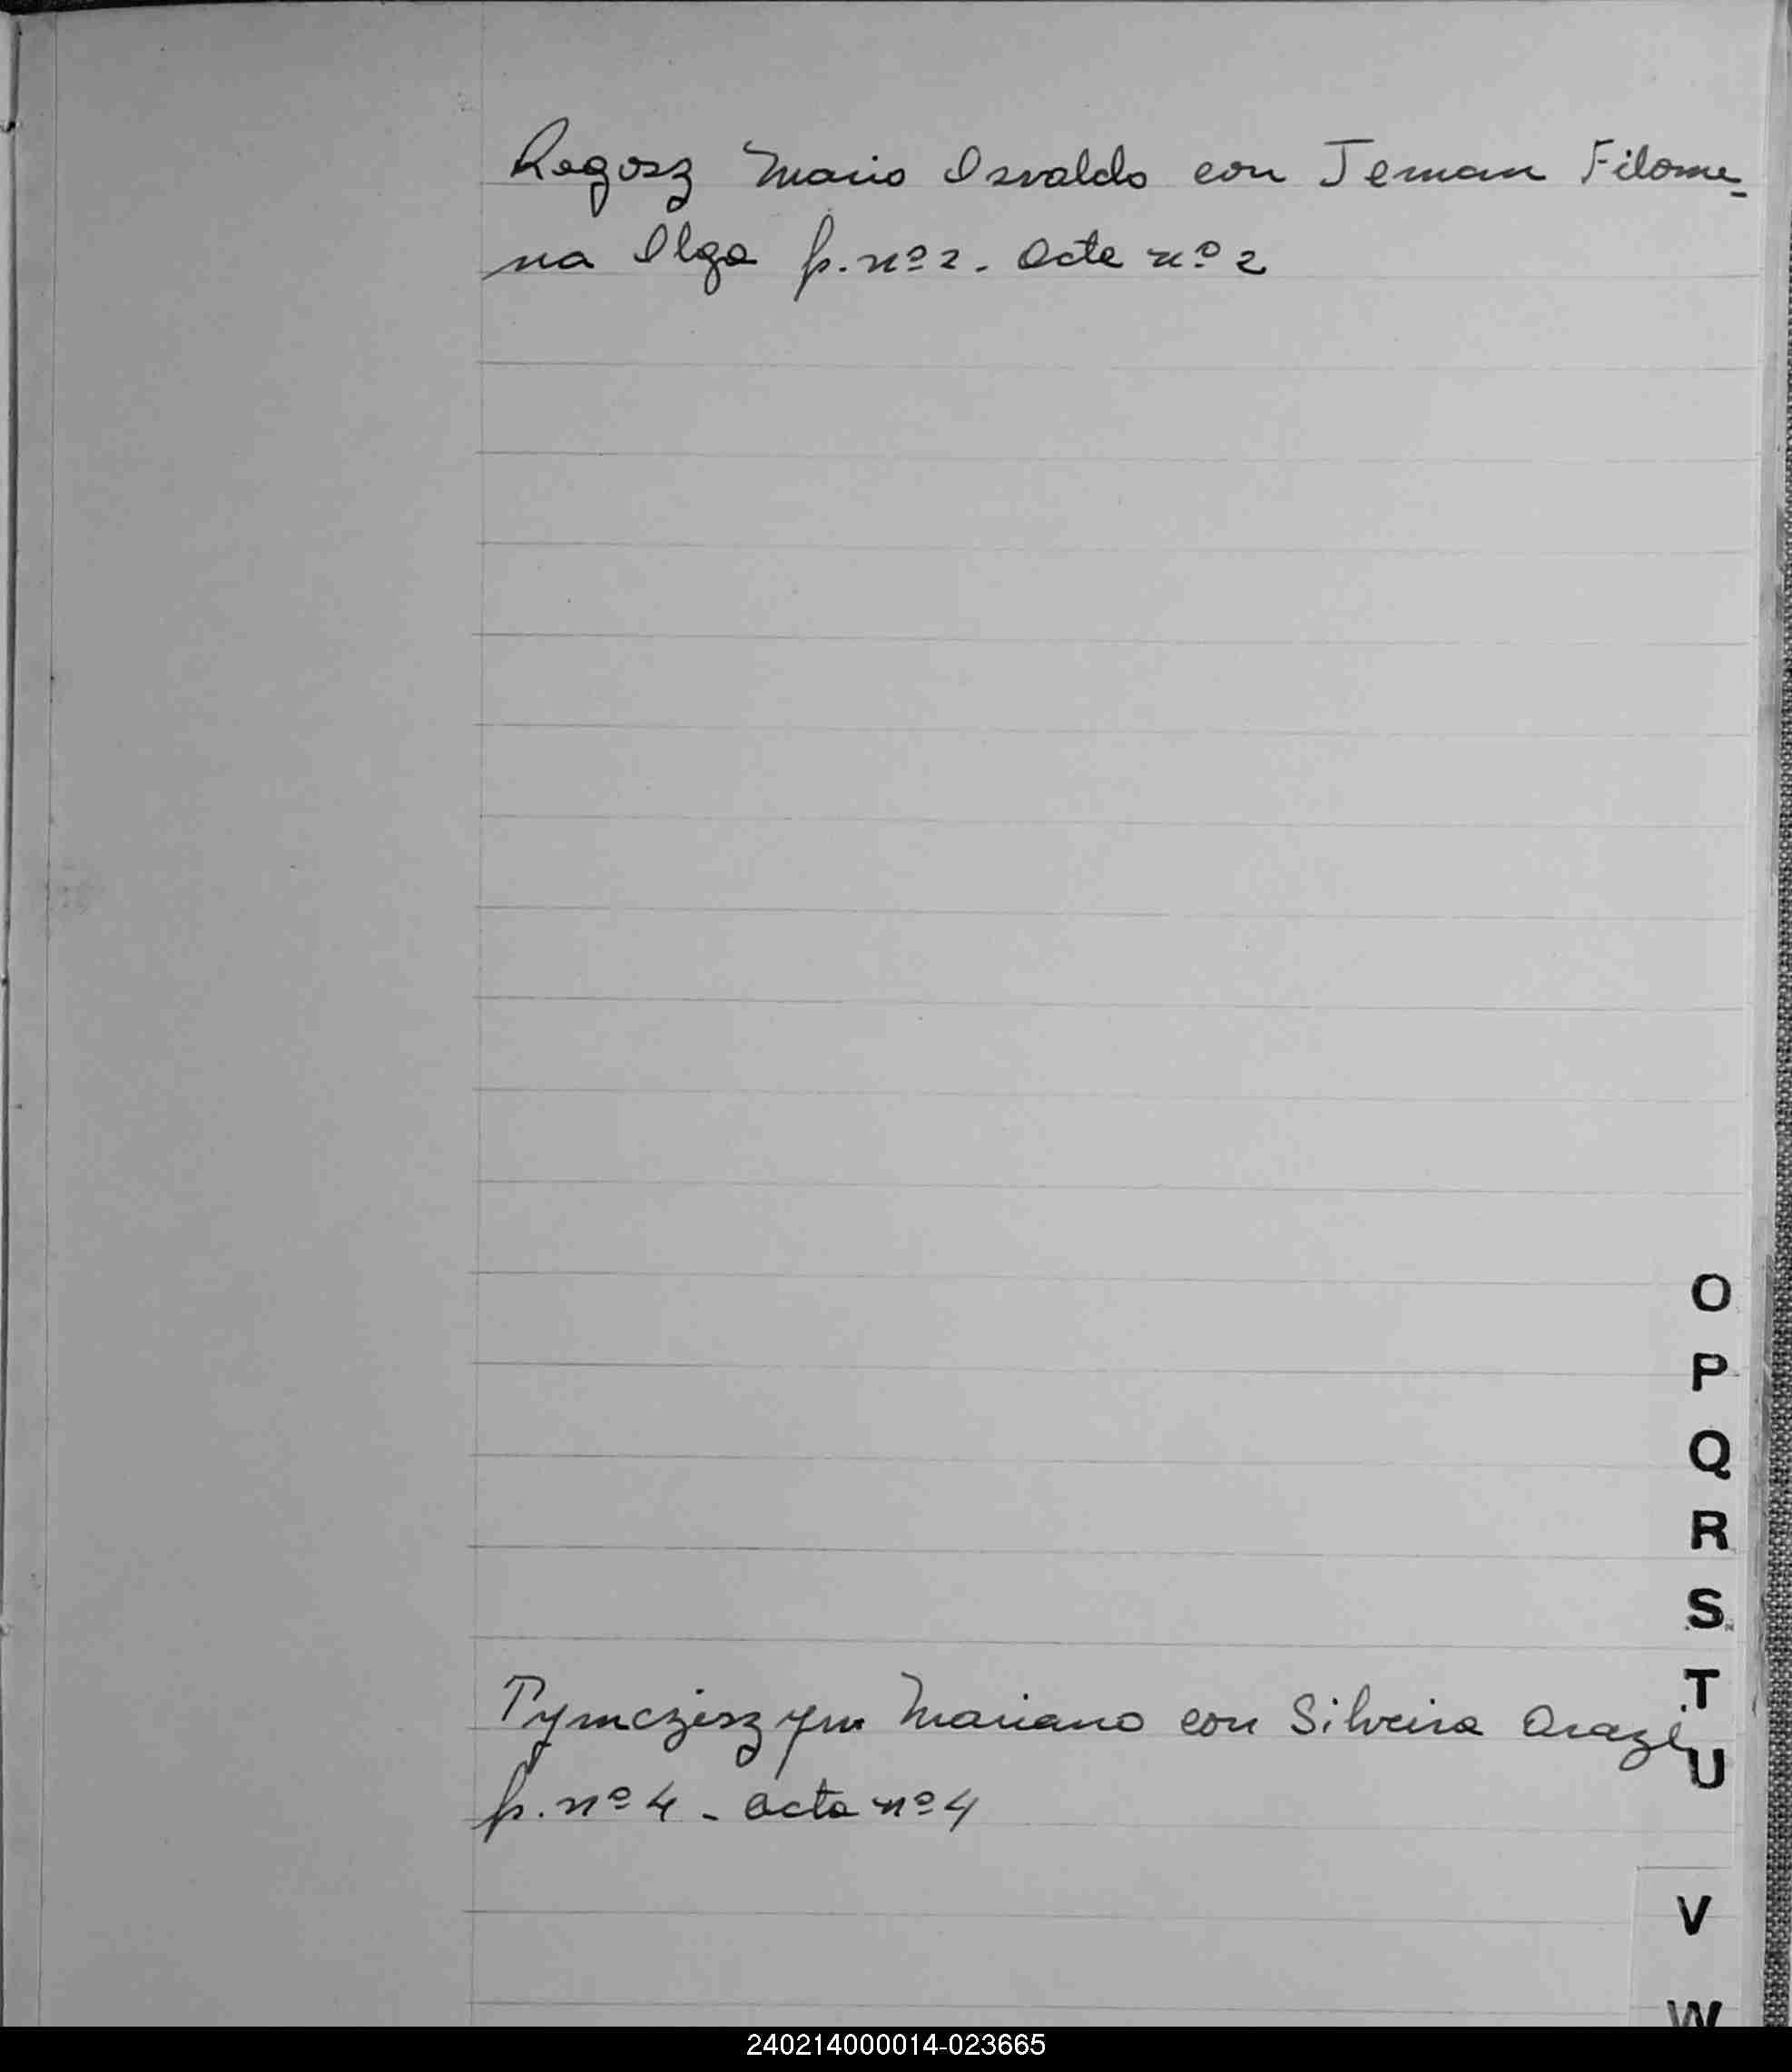 Rogosz Mario Osvaldo con Jeman Filome-
na Olga f. nº 2. Acta nº 2
O
P
Q
R
S
T
Tymczeszyn Mariano con Silveira
U
f. nº 4 - acta nº 4
V
W
240214000014-023665